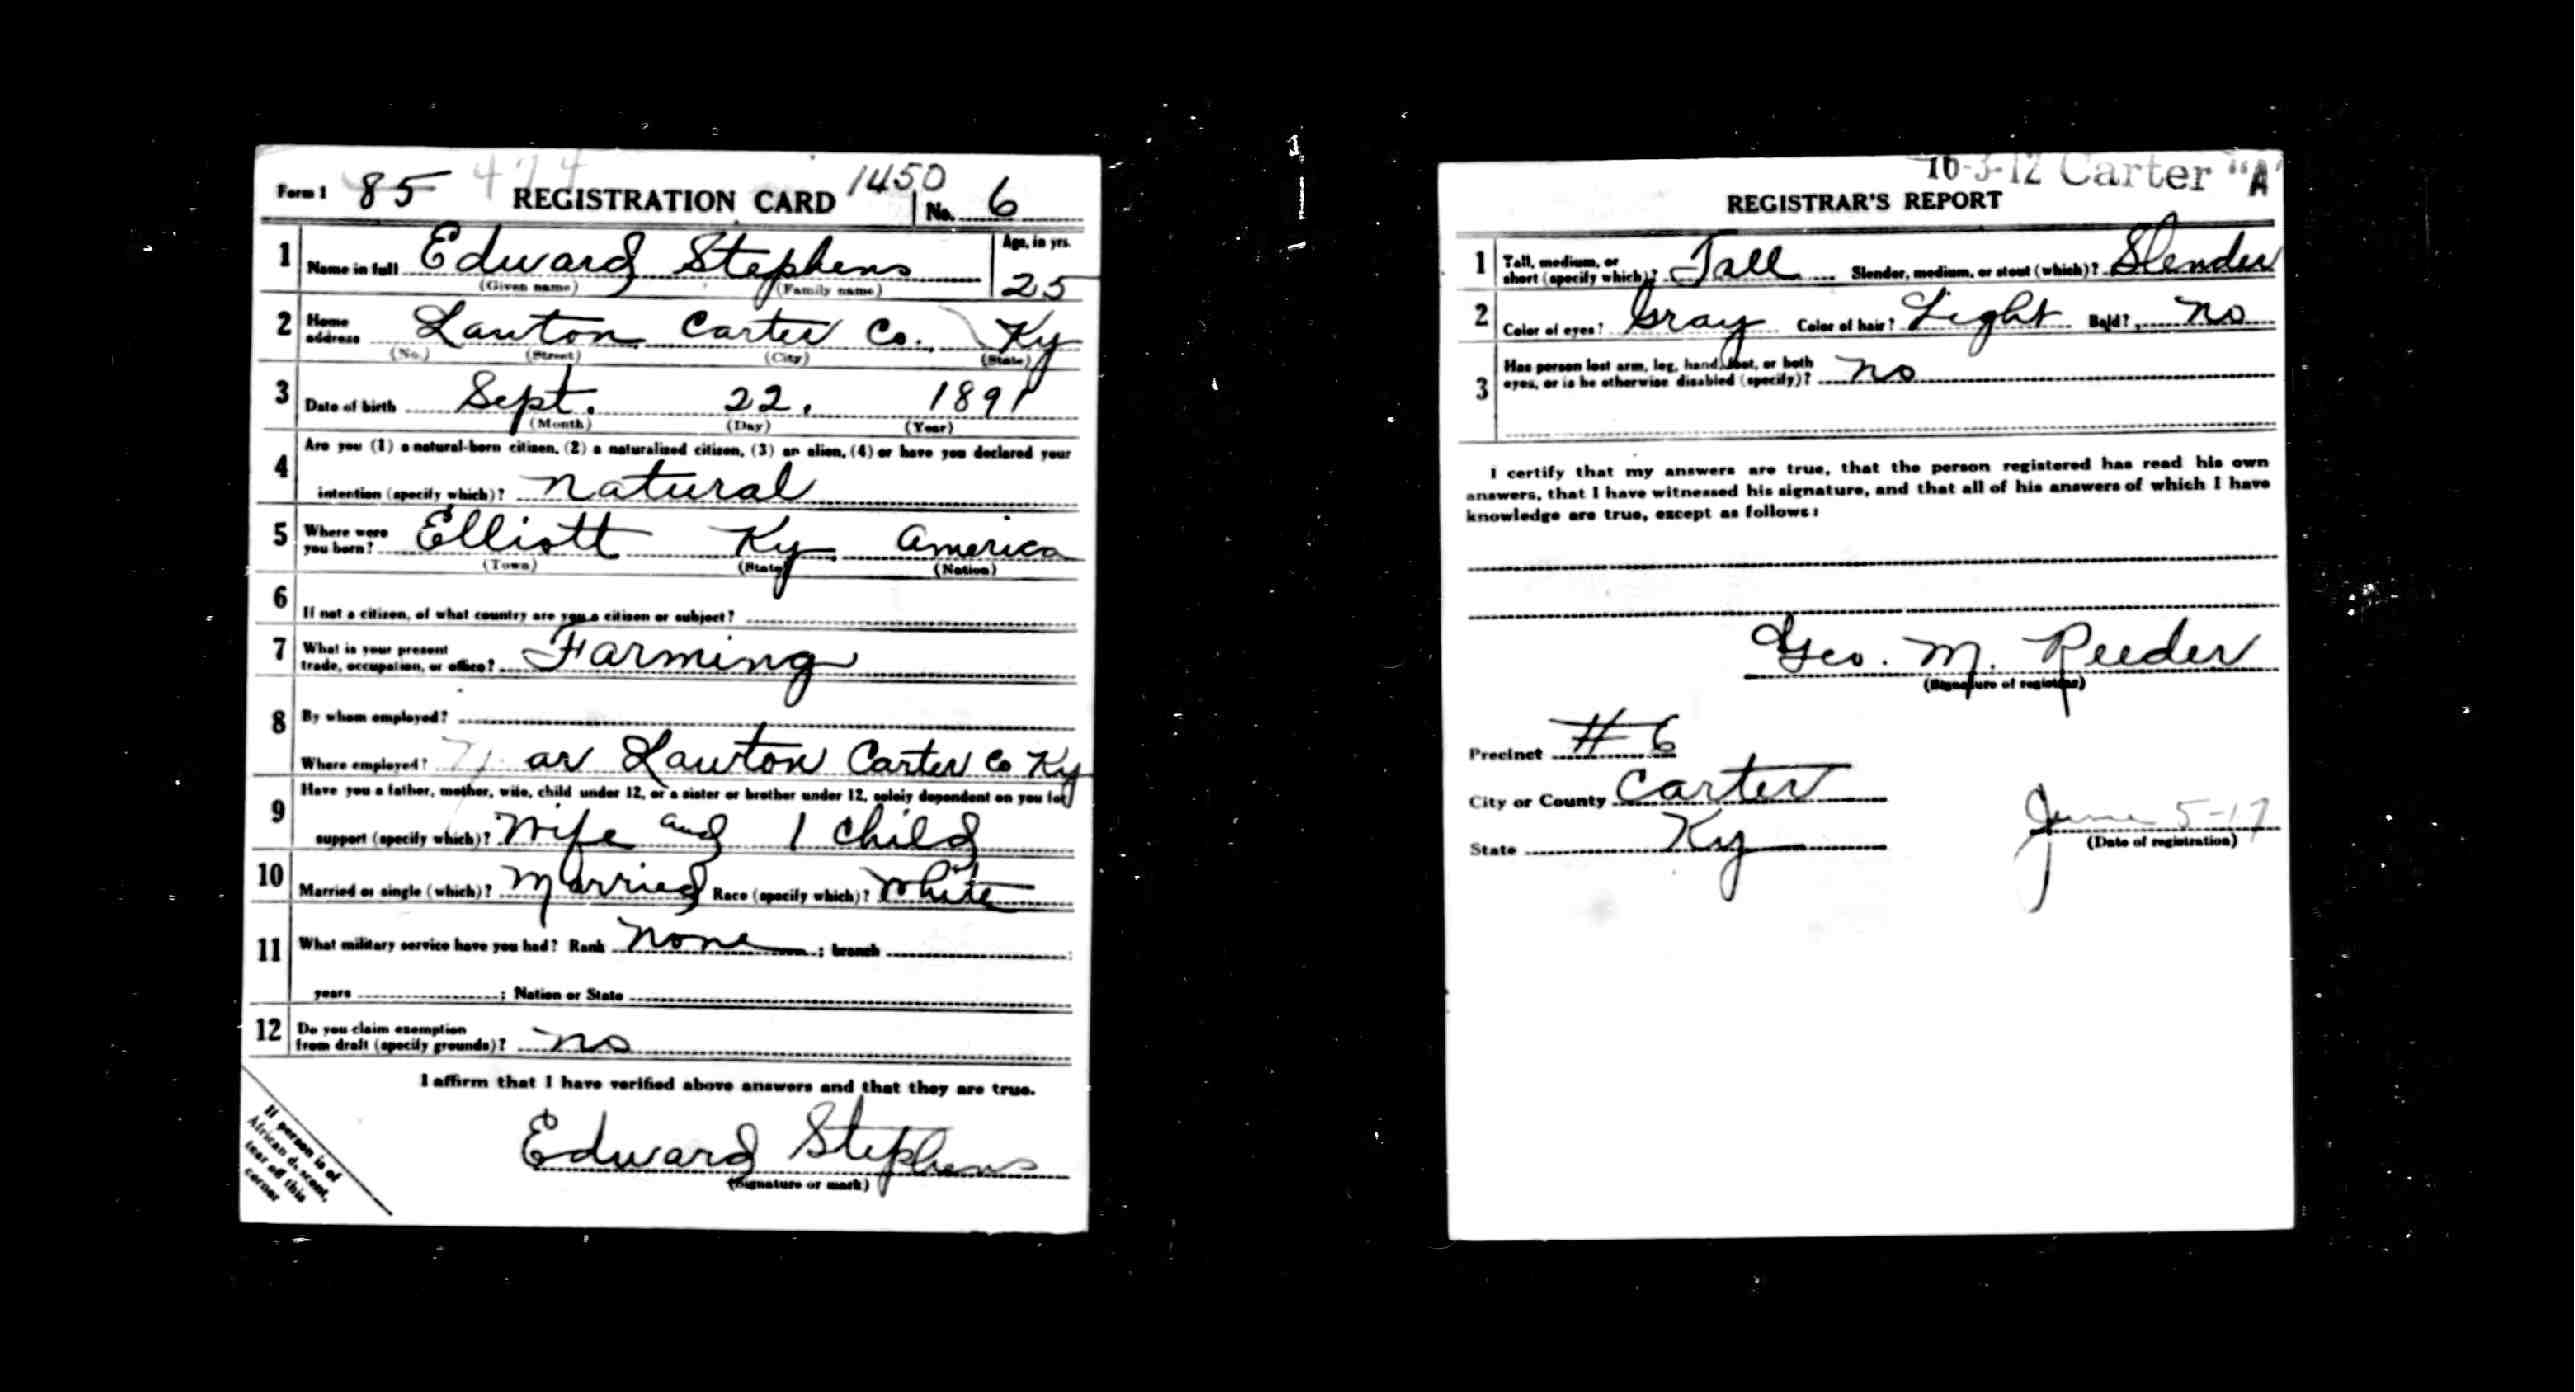 Form 1 85 474 REGISTRATION CARD 1450 No. 6
1 Name in full Edward Stephens Age, in yrs. 25
(Given name) (Family name)
2 Home address Lawton Carter Co. Ky
(No.) (Street) (City) (State)
3 Date of birth Sept. 22, 1891
(Month) (Day) (Year)
4 Are you (1) a natural-born citizen, (2) a naturalized citizen, (3) an alien, (4) or have you declared your
intention (specify which)? natural
5 Where were you born? Elliott Ky America
(Town) (State) (Nation)
6 If not a citizen, of what country are you a citizen or subject?
7 What is your present
trade, occupation, or office? Farming
8 By whom employed?
Where employed? ar Lawton Carter Co Ky
9 Have you a father, mother, wife, child under 12, or a sister or brother under 12, solely dependent on you for
support (specify which)? Wife and 1 child
10 Married or single (which)? Married Race (specify which)? White
11 What military service have you had? Rank None ; branch ;
years ; Nation or State
12 Do you claim exemption
from draft (specify grounds)? No
I affirm that I have verified above answers and that they are true.
Edward Stephens
(Signature or mark)
If person is of
African descent,
tear off this
corner
16-3-12 Carter "A"
REGISTRAR'S REPORT
1 Tall, medium, or
short (specify which)? Tall Slender, medium, or stout (which)? Slender
2 Color of eyes? Gray Color of hair? Light Bald? No
3 Has person lost arm, leg, hand, foot, or both
eyes, or is he otherwise disabled (specify)? No
I certify that my answers are true, that the person registered has read his own
answers, that I have witnessed his signature, and that all of his answers of which I have
knowledge are true, except as follows:
Geo. M. Reeder
(Signature of registrar)
Precinct # 6
City or County Carter
State Ky
June 5-17
(Date of registration)